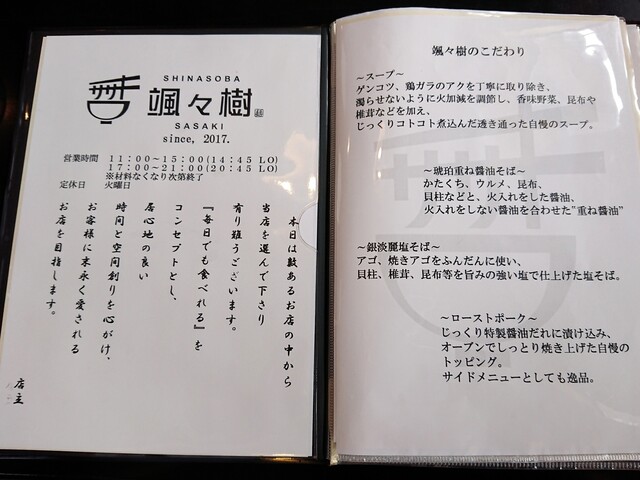 SHINASOBA
颯々樹
SASAKI
since, 2017.
営業時間 11:00～15:00(14:45 LO)
17:00～21:00(20:45 LO)
※材料なくなり次第終了
定休日 火曜日
本日は数あるお店の中から
当店を選んで下さり
有り難うございます。
『毎日でも食べれる』を
コンセプトとし、
居心地の良い
時間と空間創りを心がけ、
お客様に末永く愛される
お店を目指します。
店主
颯々樹のこだわり
～スープ～
ゲンコツ、鶏ガラのアクを丁寧に取り除き、
濁らせないように火加減を調節し、香味野菜、昆布や
椎茸などを加え、
じっくりコトコト煮込んだ透き通った自慢のスープ。
～琥珀重ね醤油そば～
かたくち、ウルメ、昆布、
貝柱などと、火入れをした醤油、
火入れをしない醤油を合わせた"重ね醤油"
～銀淡麗塩そば～
アゴ、焼きアゴをふんだんに使い、
貝柱、椎茸、昆布等を旨みの強い塩で仕上げた塩そば。
～ローストポーク～
じっくり特製醤油だれに漬け込み、
オーブンでしっとり焼き上げた自慢の
トッピング。
サイドメニューとしても逸品。